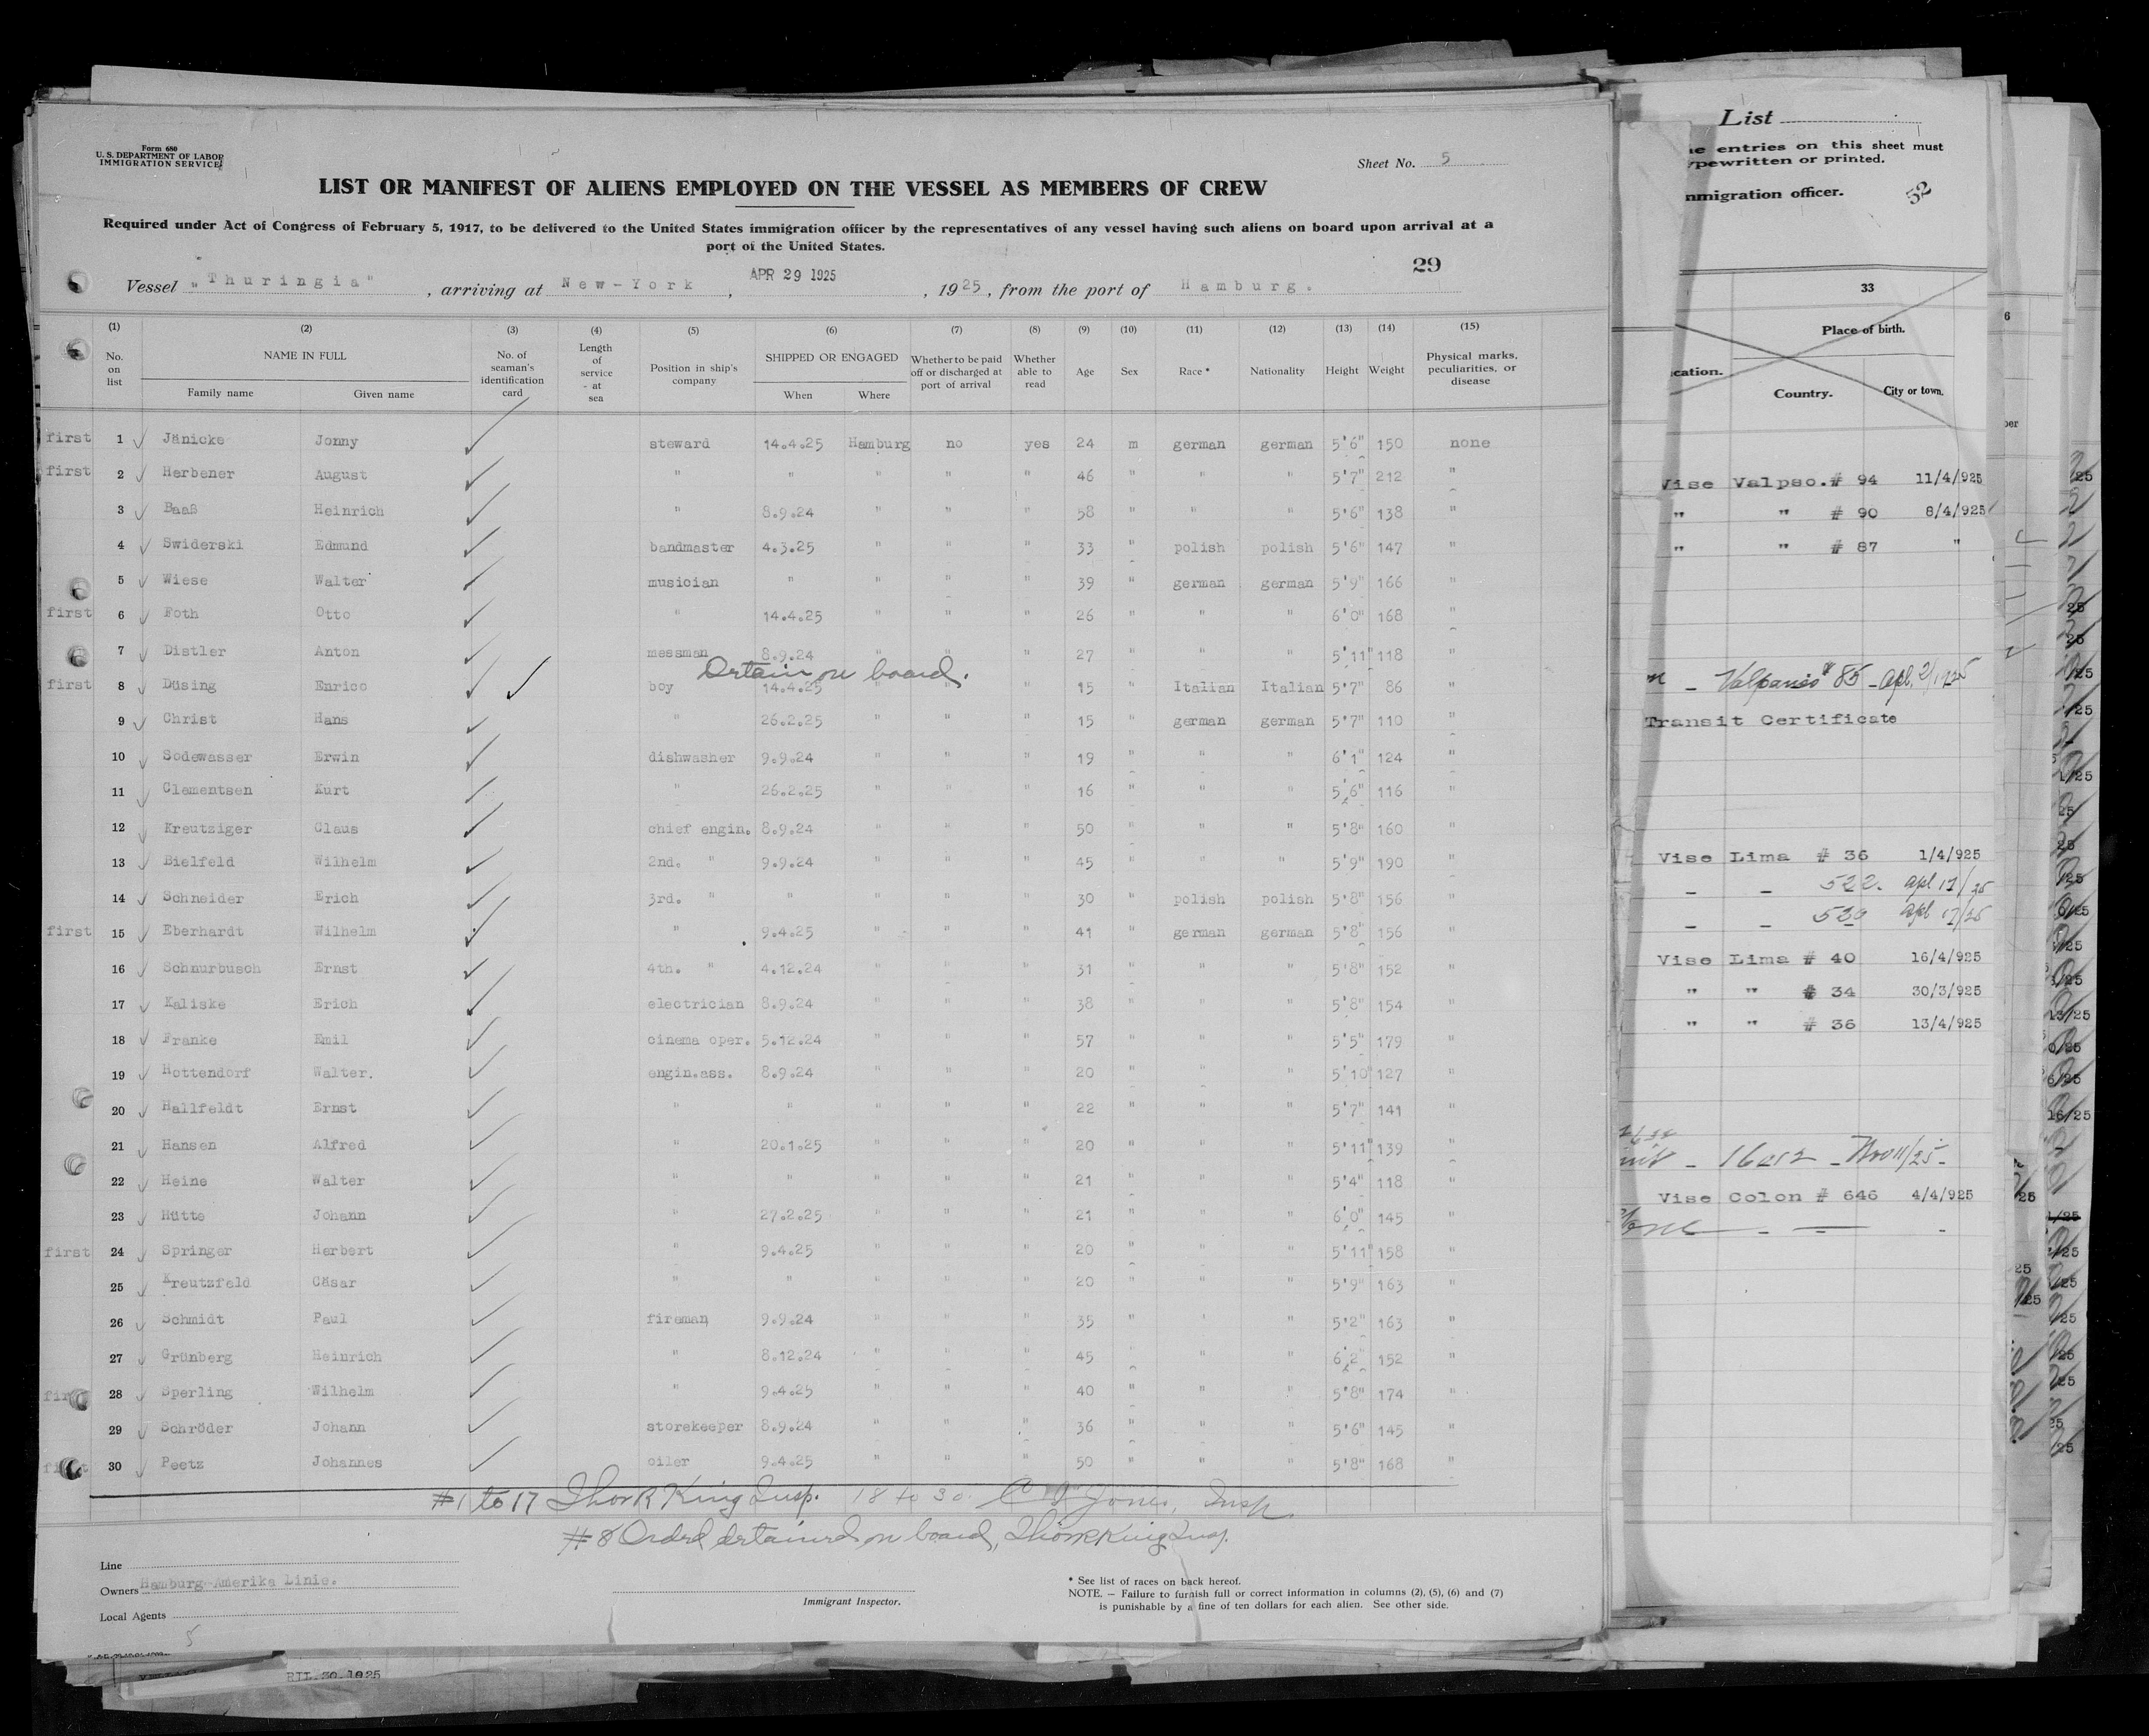 Form 680
U. S. DEPARTMENT OF LABOR
IMMIGRATION SERVICE
Sheet No. 5
LIST OR MANIFEST OF ALIENS EMPLOYED ON THE VESSEL AS MEMBERS OF CREW
Required under Act of Congress of February 5, 1917, to be delivered to the United States immigration officer by the representatives of any vessel having such aliens on board upon arrival at a
port of the United States.
29
Vessel „Thuringia" , arriving at New-York , APR 29 1925 , 1925, from the port of Hamburg.
(1) (2) (3) (4) (5) (6) (7) (8) (9) (10) (11) (12) (13) (14) (15)
No. on list NAME IN FULL Family name Given name No. of seaman's identification card Length of service at sea Position in ship's company SHIPPED OR ENGAGED When Where Whether to be paid off or discharged at port of arrival Whether able to read Age Sex Race* Nationality Height Weight Physical marks, peculiarities, or disease
first 1 Jänicke Jonny steward 14.4.25 Hamburg no yes 24 m german german 5'6" 150 none
first 2 Herbener August " " " " " 46 " " " 5'7" 212 "
3 Baaß Heinrich " 8.9.24 " " " 58 " " " 5'6" 138 "
4 Swiderski Edmund bandmaster 4.3.25 " " " 33 " polish polish 5'6" 147 "
5 Wiese Walter musician " " " " 39 " german german 5'9" 166 "
first 6 Foth Otto " 14.4.25 " " " 26 " " " 6'0" 168 "
7 Distler Anton messman 8.9.24 " " " 27 " " " 5'11" 118 "
Detain on board.
first 8 Düsing Enrico boy 14.4.25 " " " 15 " Italian Italian 5'7" 86 "
9 Christ Hans " 26.2.25 " " " 15 " german german 5'7" 110 "
10 Sodewasser Erwin dishwasher 9.9.24 " " " 19 " " " 6'1" 124 "
11 Clementsen Kurt " 26.2.25 " " " 16 " " " 5'6" 116 "
12 Kreutziger Claus chief engin. 8.9.24 " " " 50 " " " 5'8" 160 "
13 Bielfeld Wilhelm 2nd. " 9.9.24 " " " 45 " " " 5'9" 190 "
14 Schneider Erich 3rd. " " " " " 30 " polish polish 5'8" 156 "
first 15 Eberhardt Wilhelm " 9.4.25 " " " 41 " german german 5'8" 156 "
16 Schnurbusch Ernst 4th. " 4.12.24 " " " 31 " " " 5'8" 152 "
17 Kaliske Erich electrician 8.9.24 " " " 38 " " " 5'8" 154 "
18 Franke Emil cinema oper. 5.12.24 " " " 57 " " " 5'5" 179 "
19 Hottendorf Walter. engin.ass. 8.9.24 " " " 20 " " " 5'10" 127 "
20 Hallfeldt Ernst " " " " " 22 " " " 5'7" 141 "
21 Hansen Alfred " 20.1.25 " " " 20 " " " 5'11" 139 "
22 Heine Walter " " " " " 21 " " " 5'4" 118 "
23 Hütte Johann " 27.2.25 " " " 21 " " " 6'0" 145 "
first 24 Springer Herbert " 9.4.25 " " " 20 " " " 5'11" 158 "
25 Kreutzfeld Cäsar " " " " " 20 " " " 5'9" 163 "
26 Schmidt Paul fireman 9.9.24 " " " 35 " " " 5'2" 163 "
27 Grünberg Heinrich " 8.12.24 " " " 45 " " " 6'2" 152 "
first 28 Sperling Wilhelm " 9.4.25 " " " 40 " " " 5'8" 174 "
29 Schröder Johann storekeeper 8.9.24 " " " 36 " " " 5'6" 145 "
first 30 Peetz Johannes oiler 9.4.25 " " " 50 " " " 5'8" 168 "
#1 to 17 Thor R King Insp. 18 to 30. Jones, Insp
#8 Ordrd detained on board, Thor R King Insp.
Line
Owners Hamburg-Amerika Linie.
Local Agents
Immigrant Inspector.
* See list of races on back hereof.
NOTE. — Failure to furnish full or correct information in columns (2), (5), (6) and (7)
is punishable by a fine of ten dollars for each alien. See other side.
5
RIL.30.1925
List
entries on this sheet must
ypewritten or printed.
mmigration officer.
52
33
Place of birth.
cation.
Country. City or town.
Vise Valpso.# 94 11/4/925
" " # 90 8/4/925
" " # 87 "
85 - Apl. 2/1925
Transit Certificate
Vise Lima # 36 1/4/925
522. apl 17/25
530 apl 17/25
Vise Lima # 40 16/4/925
" " # 34 30/3/925
" " # 36 13/4/925
Vise Colon # 646 4/4/925